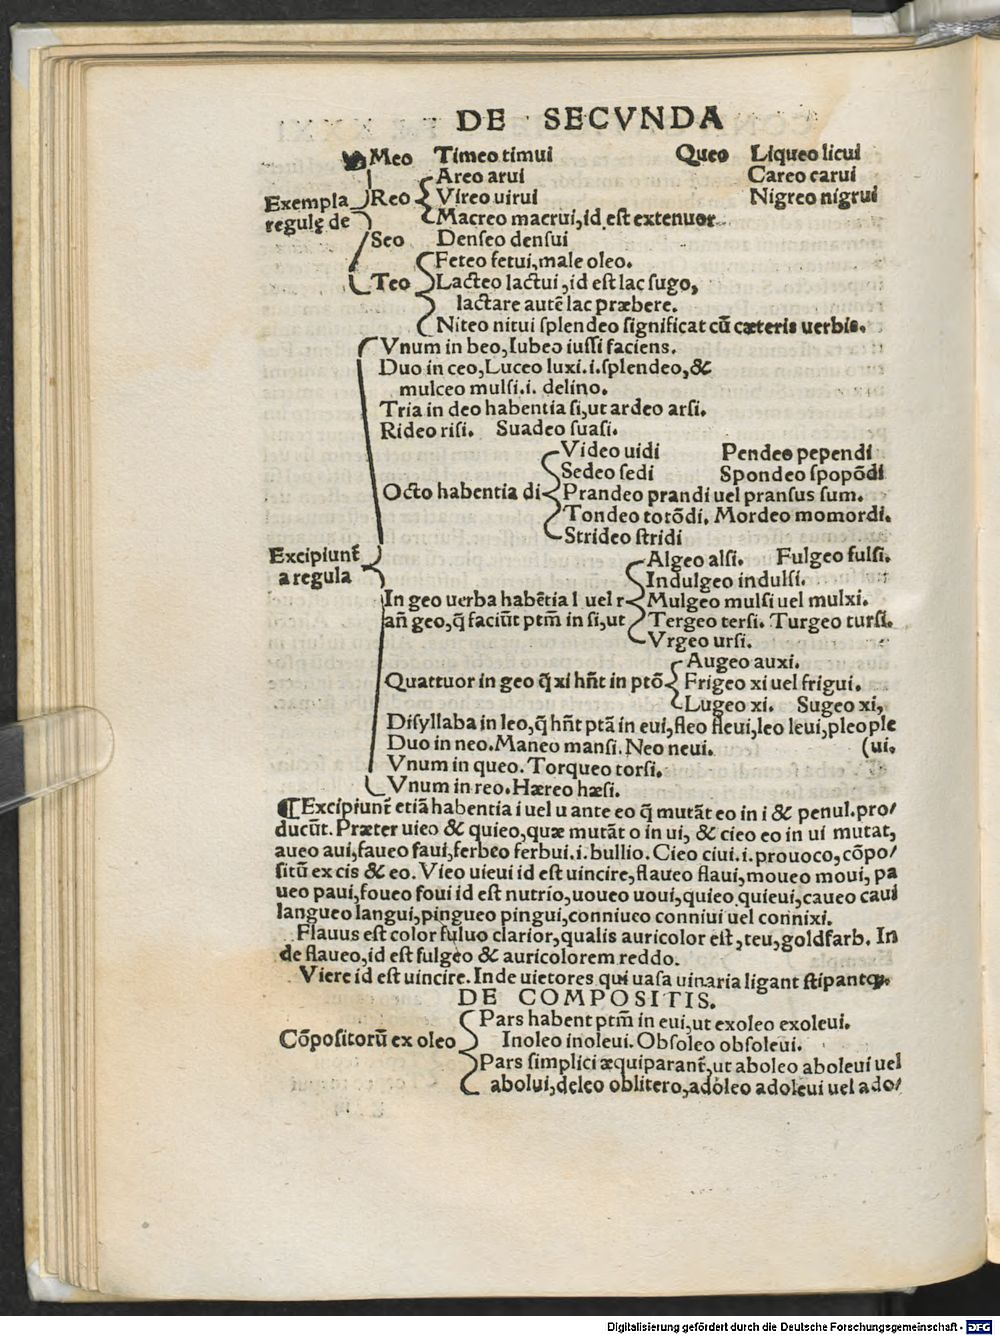 DE SECVNDA
Meo Timeo timui Queo Liqueo licui
Areo arui Careo carui
Exempla Reo Vireo uirui Nigreo nigrui
regulę de Macreo macrui, id est extenuor
Seo Denseo densui
Feteo fetui, male oleo.
Teo Lacteo lactui, id est lac sugo,
lactare autē lac præbere.
Niteo nitui splendeo significat cū cæteris uerbis.
Vnum in beo, Iubeo iussi faciens.
Duo in ceo, Luceo luxi .i. splendeo, &
mulceo mulsi .i. delino.
Tria in deo habentia si, ut ardeo arsi.
Rideo risi. Suadeo suasi.
Video uidi Pendeo pependi
Sedeo sedi Spondeo spopōdi
Octo habentia di Prandeo prandi uel pransus sum.
Tondeo totōdi. Mordeo momordi.
Strideo stridi
Excipiunt̄ Algeo alsi. Fulgeo fulsi.
a regula Indulgeo indulsi.
In geo uerba habētia l uel r Mulgeo mulsi uel mulxi.
añ geo, q̄ faciūt ptm̄ in si, ut Tergeo tersi. Turgeo tursi.
Vrgeo ursi.
Augeo auxi.
Quattuor in geo q̄ xi hñt in ptō Frigeo xi uel frigui.
Lugeo xi. Sugeo xi,
Disyllaba in leo, q̄ hñt ptā in eui, fleo fleui, leo leui, pleo ple
Duo in neo. Maneo mansi. Neo neui. (ui.
Vnum in queo. Torqueo torsi.
Vnum in reo. Hæreo hæsi.
¶ Excipiunt̄ etiā habentia i uel u ante eo q̄ mutāt eo in i & penul. pro/
ducūt. Præter uieo & quieo, quæ mutāt o in ui, & cieo eo in ui mutat,
aueo aui, faueo faui, ferbeo ferbui .i. bullio. Cieo ciui .i. prouoco, cōpo/
sitū ex cis & eo. Vieo uieui id est uincire, flaueo flaui, moueo moui, pa
ueo paui, foueo foui id est nutrio, uoueo uoui, quieo quieui, caueo caui
langueo langui, pingueo pingui, conniueo conniui uel connixi.
Flauus est color fuluo clarior, qualis auricolor est, teu, goldfarb. In
de flaueo, id est fulgeo & auricolorem reddo.
Viere id est uincire. Inde uietores qui uasa uinaria ligant stipantq;.
DE COMPOSITIS.
Pars habent ptm̄ in eui, ut exoleo exoleui.
Cōpositorū ex oleo Inoleo inoleui. Obsoleo obsoleui.
Pars simplici æquiparant̄, ut aboleo aboleui uel
abolui, deleo oblitero, adoleo adoleui uel ado/
Digitalisierung gefördert durch die Deutsche Forschungsgemeinschaft - DFG